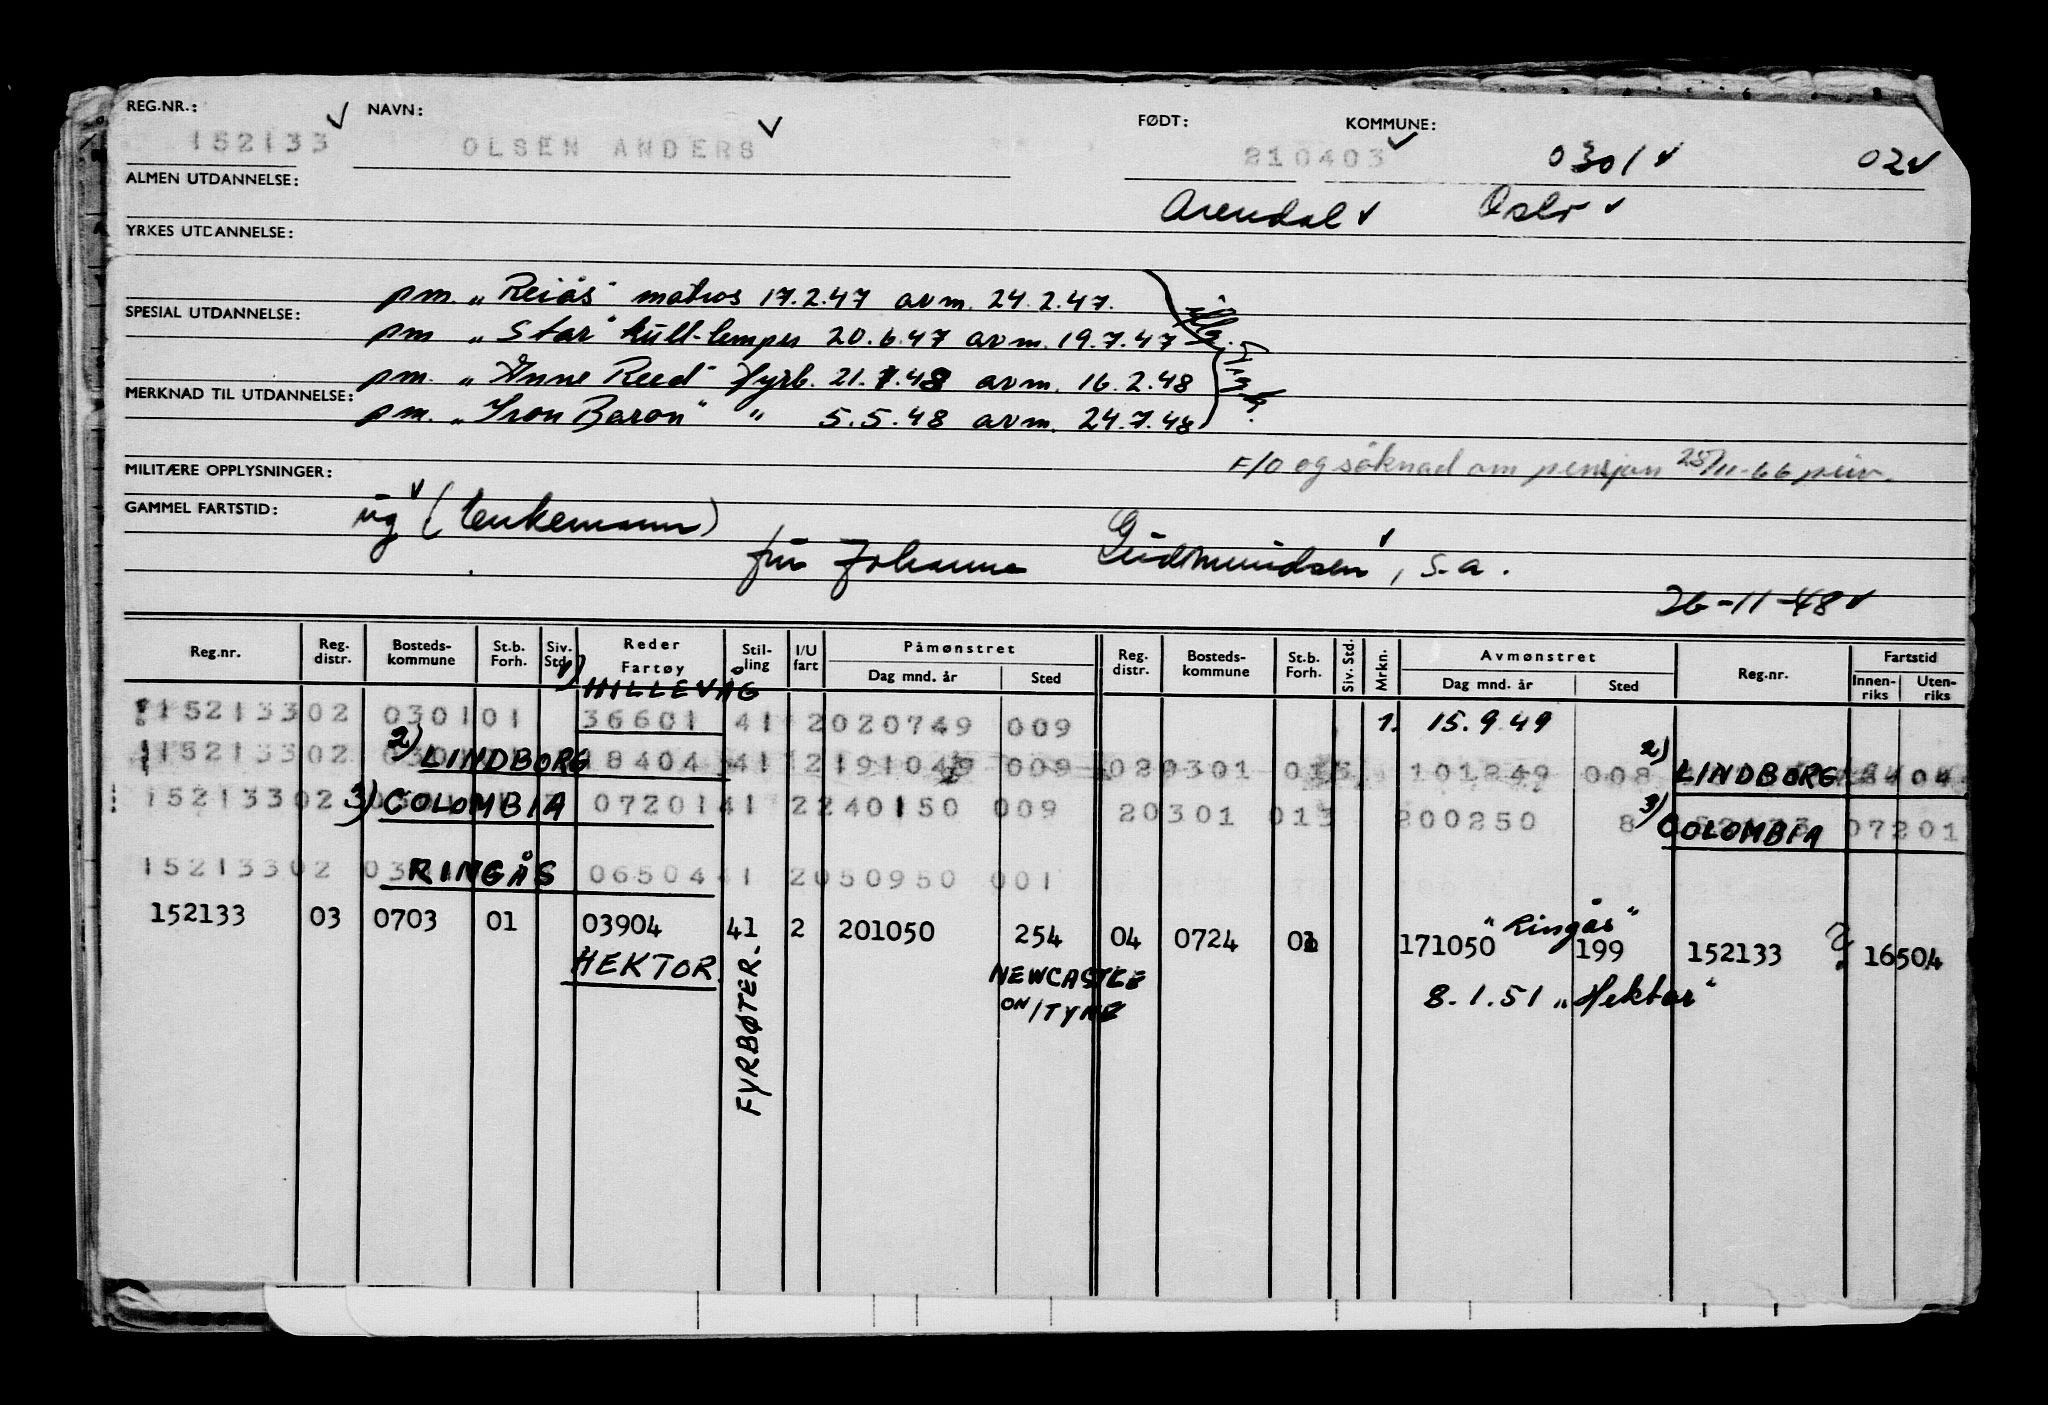 REG.NR.: NAVN: FØDT: KOMMUNE:
152133 OLSEN ANDERS 210403 0301 02
ALMEN UTDANNELSE: Arendal Oslo
YRKES UTDANNELSE:
pm. „Reiås" matros 17.2.47 avm. 24.2.47.
SPESIAL UTDANNELSE:
pm „Star" kull-lemper 20.6.47 avm. 19.7.47
pm. „Anne Reed" fyrb. 21.1.48 avm. 16.2.48
MERKNAD TIL UTDANNELSE:
pm. „Iron Baron" " 5.5.48 avm. 24.7.48
F/O og søknad om pensjon 25/11-66
MILITÆRE OPPLYSNINGER:
GAMMEL FARTSTID: ug (enkemann)
Gudmundsen, s.a.
26-11-48
Reg.nr. Reg. distr. Bosteds-kommune St.b. Forh. Siv. Std. Reder Fartøy Stil-ling I/U fart Påmønstret Dag mnd. år Sted Reg. distr. Bosteds-kommune St.b. Forh. Siv. Std. Mrkn. Avmønstret Dag mnd. år Sted Reg.nr. Fartstid Innen-riks Uten-riks
1) HILLEVÅG
152133 02 0301 01 36601 41 2 020749 009 1. 15.9.49
152133 02 2) LINDBORG 18404 41 2 191049 009 02 0301 01 101249 008 2) LINDBORG
152133 02 3) COLOMBIA 07201 41 2 240150 009 2 0301 013 200250 8 3) COLOMBIA 07201
152133 02 RINGÅS 06504 41 2 050950 001
152133 03 0703 01 03904 41 2 201050 254 04 0724 01 171050 "Ringås" 199 152133 ? 16504
HEKTOR. FYRBØTER. NEWCASTLE ON/TYNE 8.1.51 „Hektor"